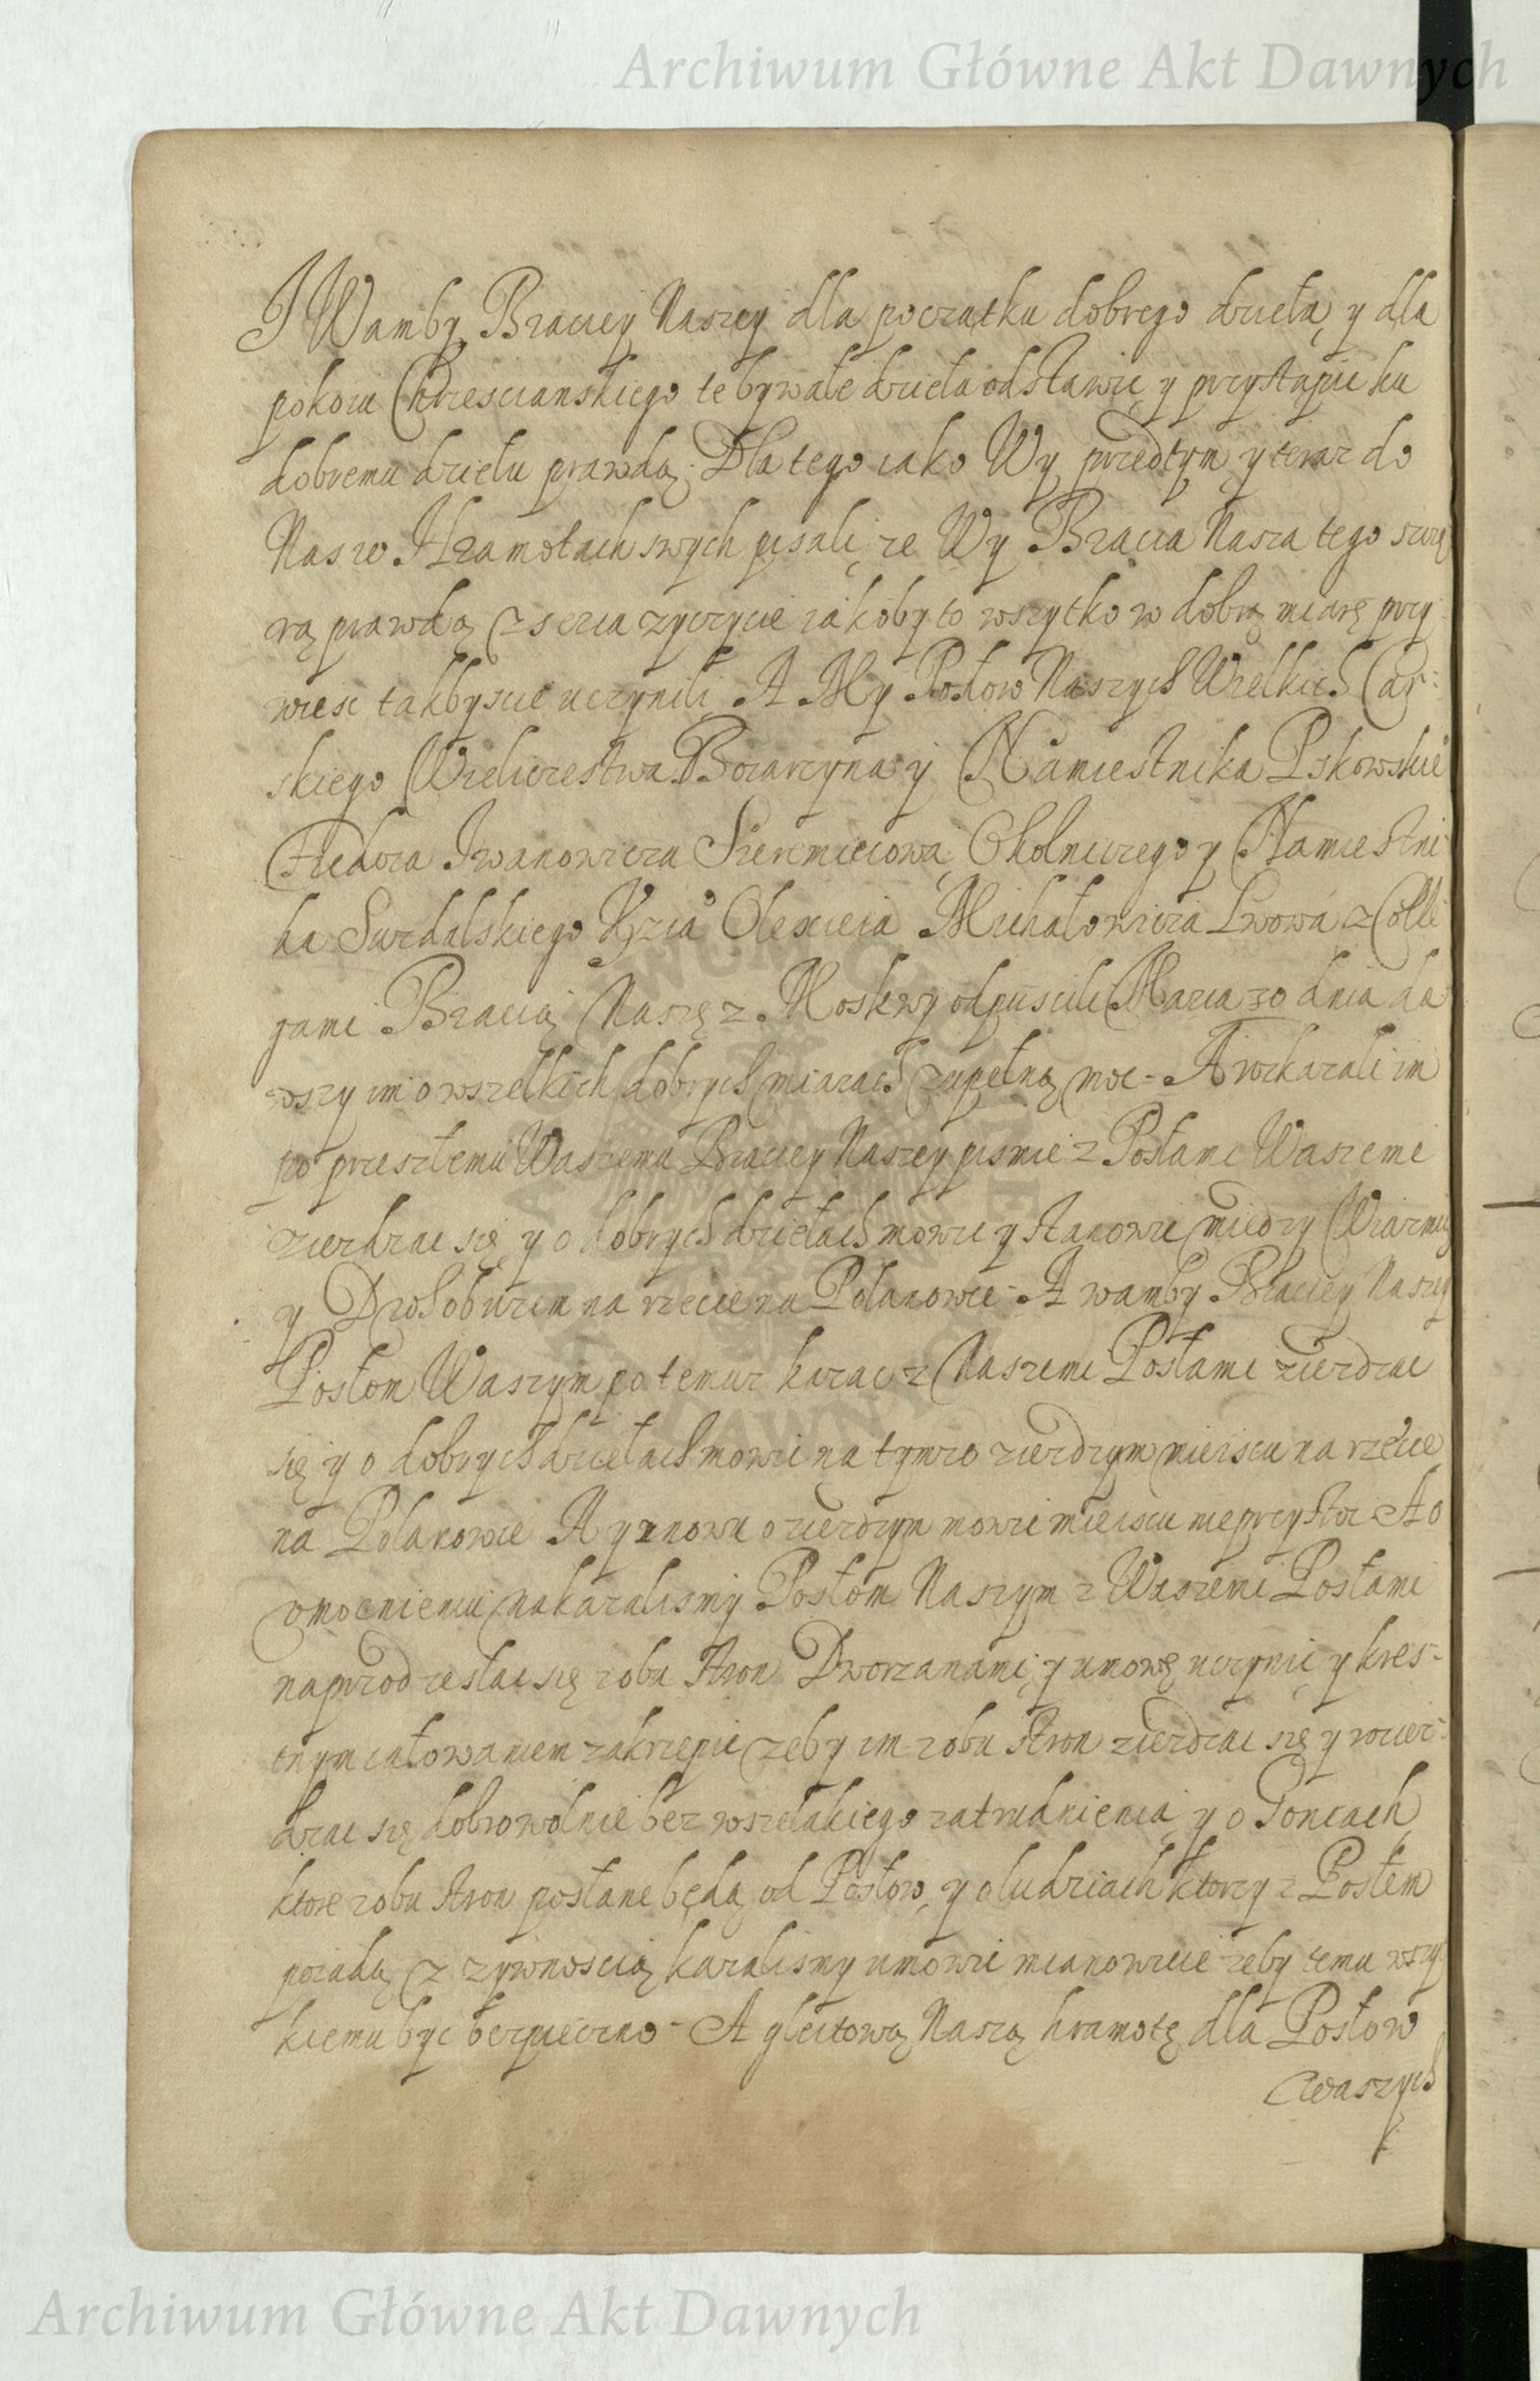 Archiwum Główne Akt Dawnych
I Wamby Braciey Naszey dla początku dobrego dzieła, y dla
pokoiu Chrzescianskiego te bywałe dzieła odstawic, y przystąpic ku
dobremu dziełu prawdą. Dla tego iako Wy przedtym y teraz do
Nas w Hramotach swych pisali, ze Wy Bracia Nasza tego szcze
rą prawdą z serca zyczycie iakoby to wszytko w dobrą miarę przy
wiesc takbyscie uczynili. A My Posłow Naszych Wielkich Car:
skiego Wieliczestwa Boiarzyna y Namiestnika Pskowskie
Fiedora Iwanowicza Szeremieciowa, Okolniczego y Namiestni
ka Suzdalskiego Kzia Olexieia Michałowicza Lwowa z Colle
gami Bracią Naszę z Moskwy odpuscili Marca 30 dnia da
wszy im o wszelkich dobrych miarach zupełną moc - A wskazali im
po przeszłemu Waszemu Braciey Naszey pismie z Posłami Waszemi
ziezdzac się y o dobrych dziełach mowic y stanowic miedzy Wiazmą
y Drohobużem na rzecie na Polanowce - A wamby Braciey Naszey
Posłom Waszym po temuz kazac z Naszemi Posłami ziezdzac
się y o dobrych dziełach mowic na tymze ziezdzym mieiscu na rzecie
na Polanowce A y znowu o ziezdzym nowie mieiscu nie przystoi A o
vmocnieniu nakazalismy Posłom Naszym z Waszemi Posłami
naprzod zesłac się z obu stron Dworzanami, y umowę uczynic, y kres-
tnym całowaniem zakrzepic zeby im z obu stron ziezdzac się y rozież:
dzac się dobrowolnie bez wszelakiego zatrudnienia, y o Goncach,
ktore z obu stron posłane będą od Posłow, y o ludziach ktorzy z Posłem
poiadą z zywnoscią kazalismy umowic mianowicie zeby temu wszy
kiemu byc bezpieczno - A gleitową Naszą hramotę dla Posłow
waszych
Archiwum Główne Akt Dawnych